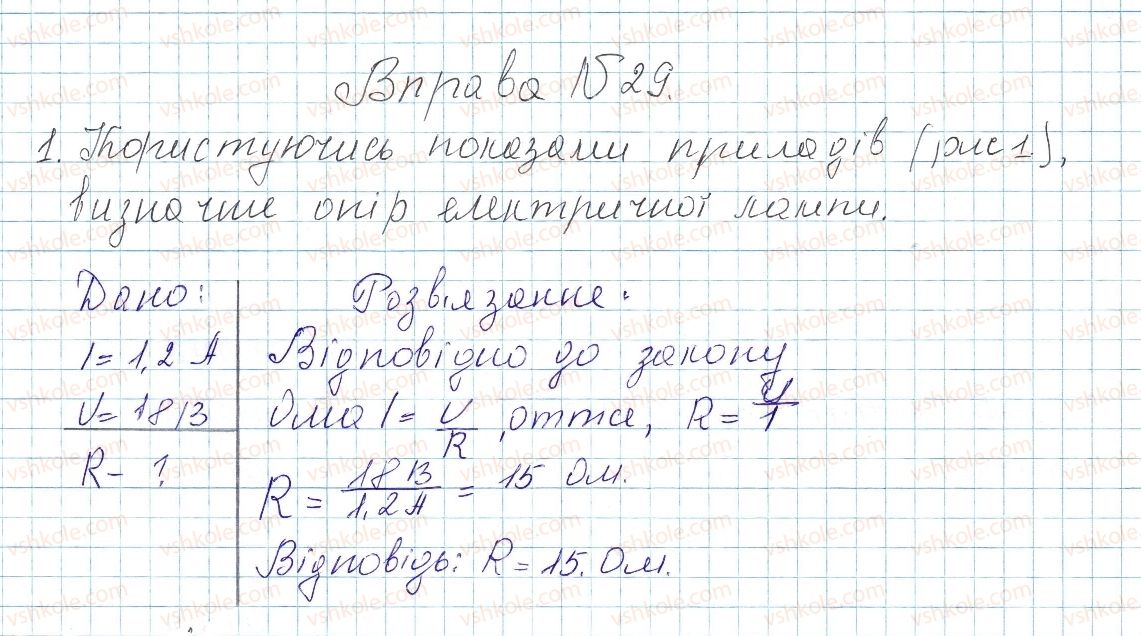 Вправа №29.
1. Користуючись показами приладів (рис 1.),
визначте опір електричної лампи.
Дано:
I = 1,2 А
U = 18 В
R - ?
Розв'язання:
Відповідно до закону
Ома I = U/R, отже, R = U/I
R = 18 В/1,2 А = 15 Ом.
Відповідь: R = 15. Ом.
vshkole.com